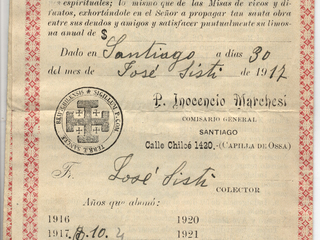 espirituales; Es mismo que de las Misas de vivos y di-
funtos, exhortándole en el Señor a propagar tan santa obra
entre sus deudos y amigos y satisfacer puntualmente su limos-
na anual de $
Dado en Santiago a días 30
del mes de José Sisti de 1917
P. Inocencio Marchesi
COMISARIO GENERAL
SANTIAGO
Calle Chiloé 1420.-(CAPILLA DE OSSA)
Fr. José Sisti
COLECTOR
Años que abonó:
1916 1920
1917 10 1921